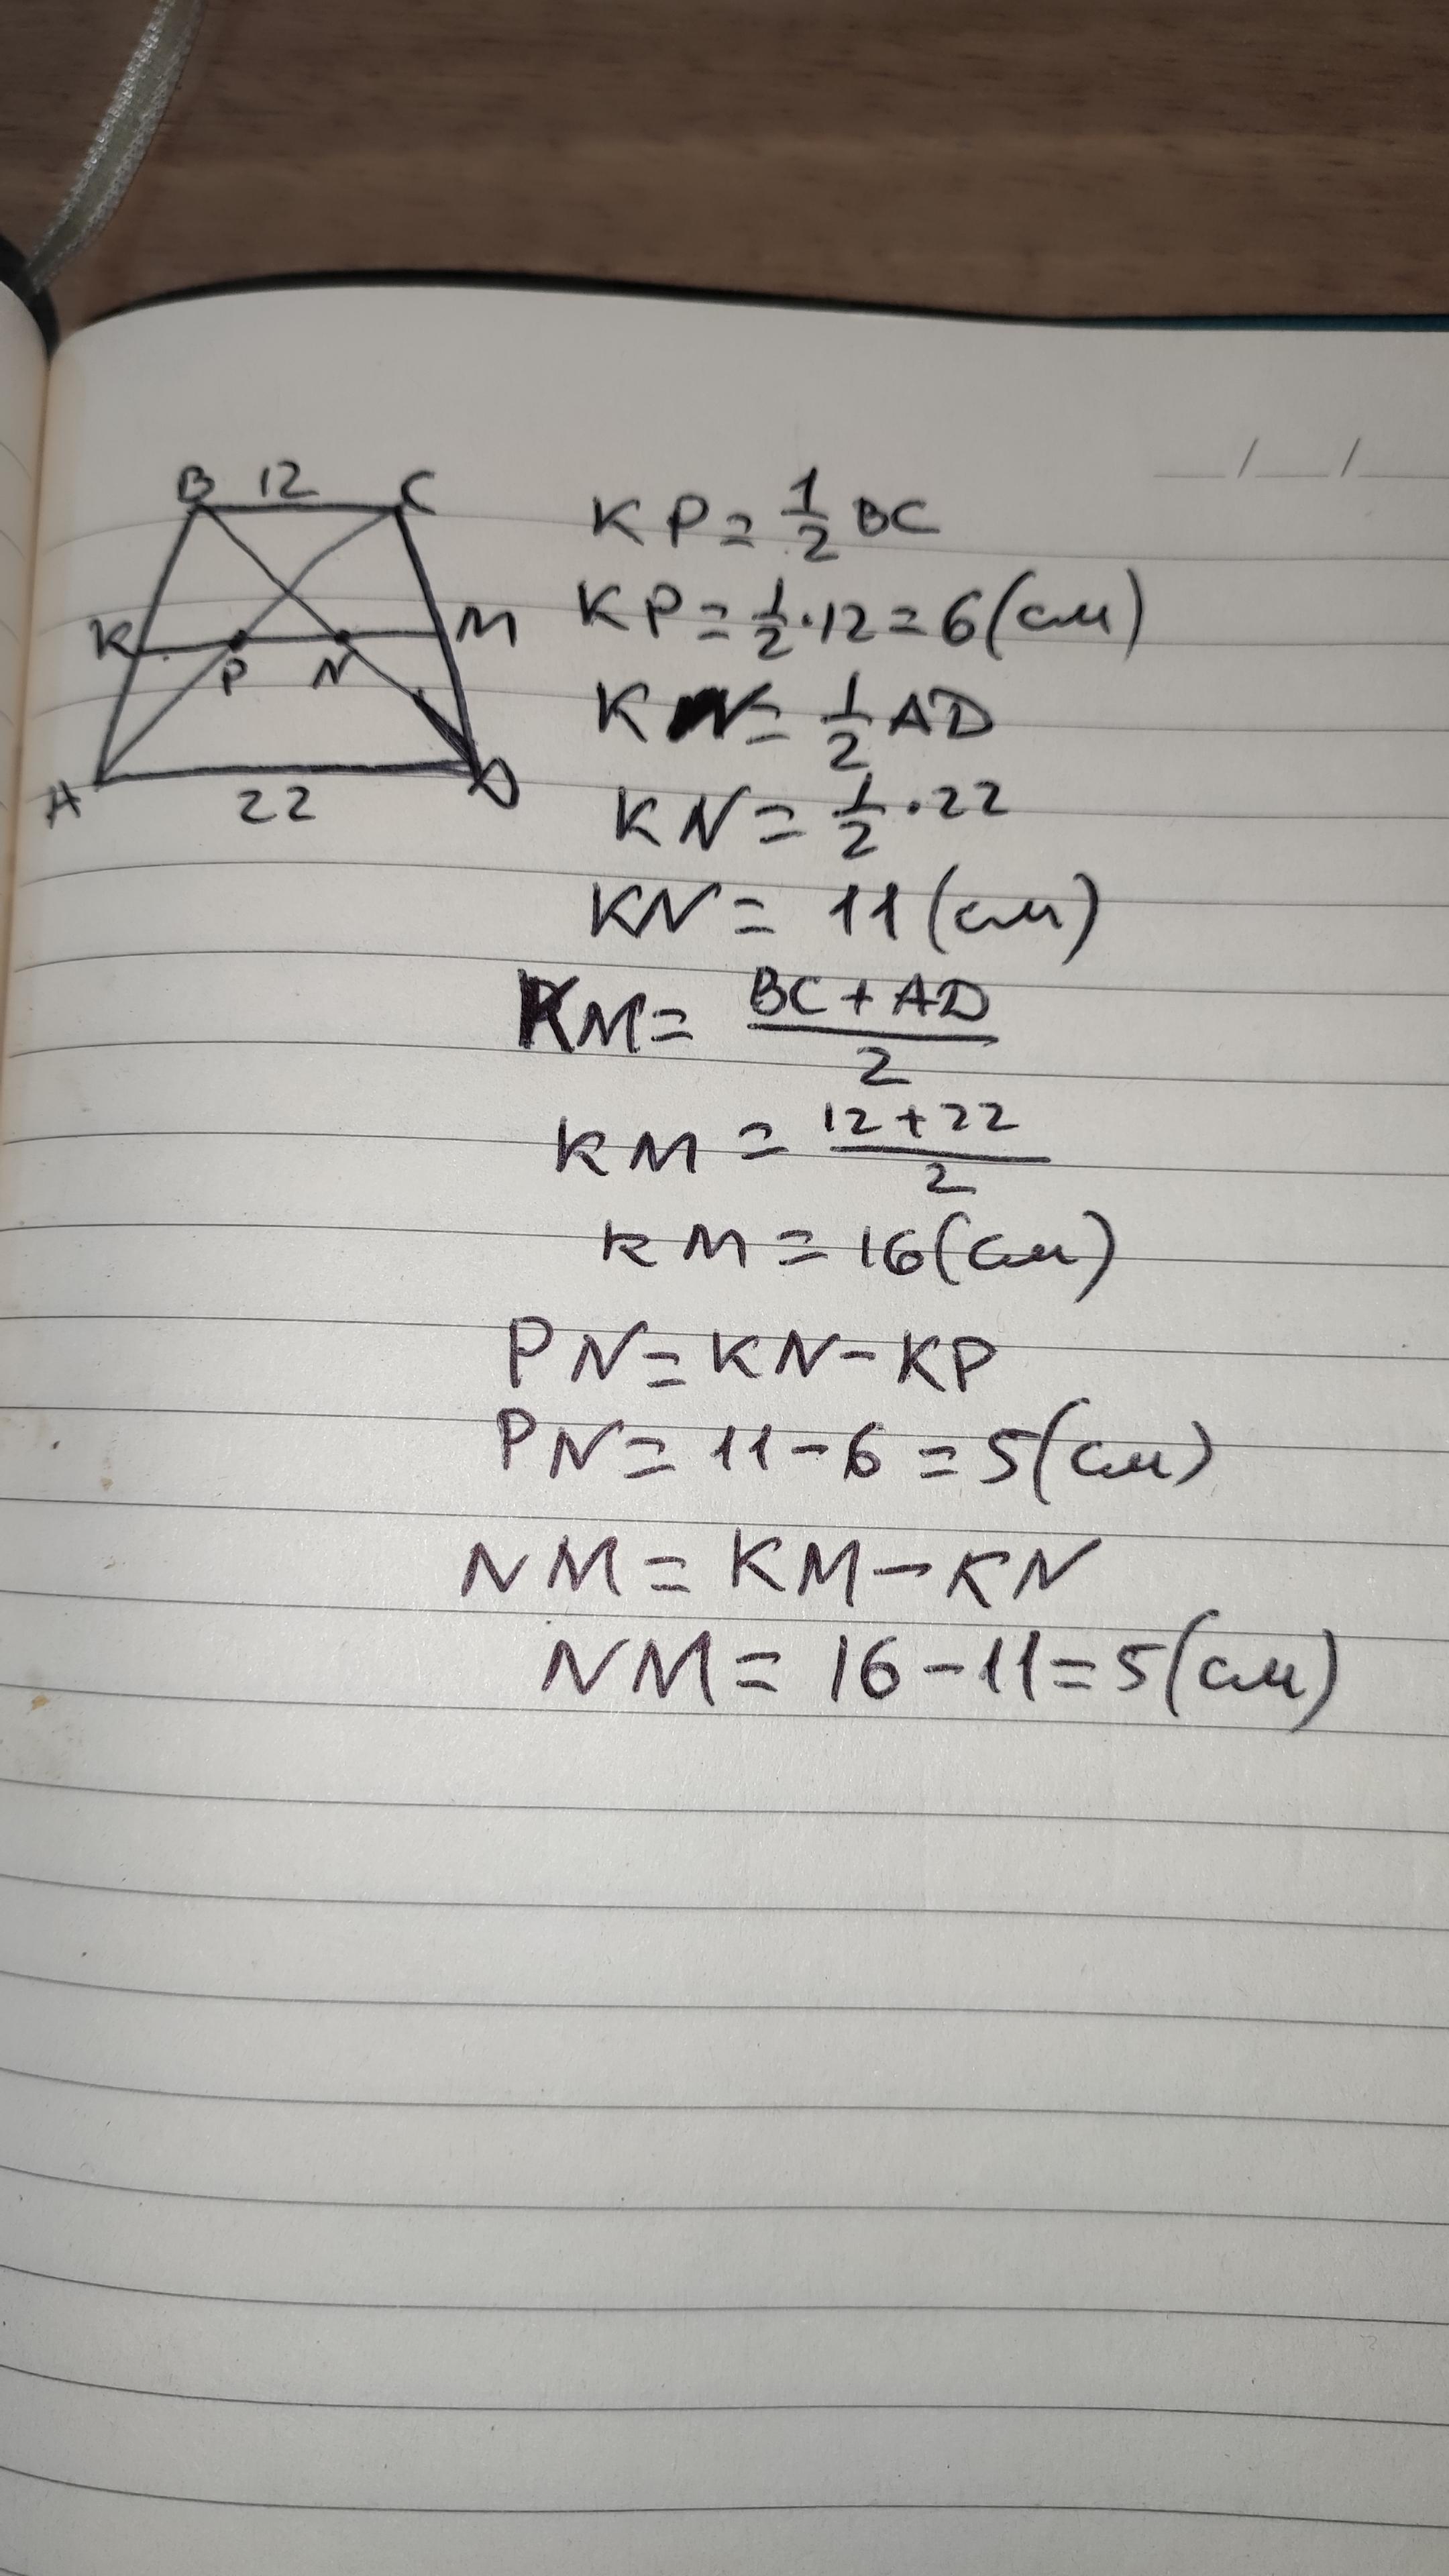 B 12 C
K P N M
A 22 D
KP = 1/2 BC
KP = 1/2 · 12 = 6 (см)
KN = 1/2 AD
KN = 1/2 · 22
KN = 11 (см)
KM = (BC + AD)/2
KM = (12 + 22)/2
KM = 16 (см)
PN = KN - KP
PN = 11 - 6 = 5 (см)
NM = KM - KN
NM = 16 - 11 = 5 (см)